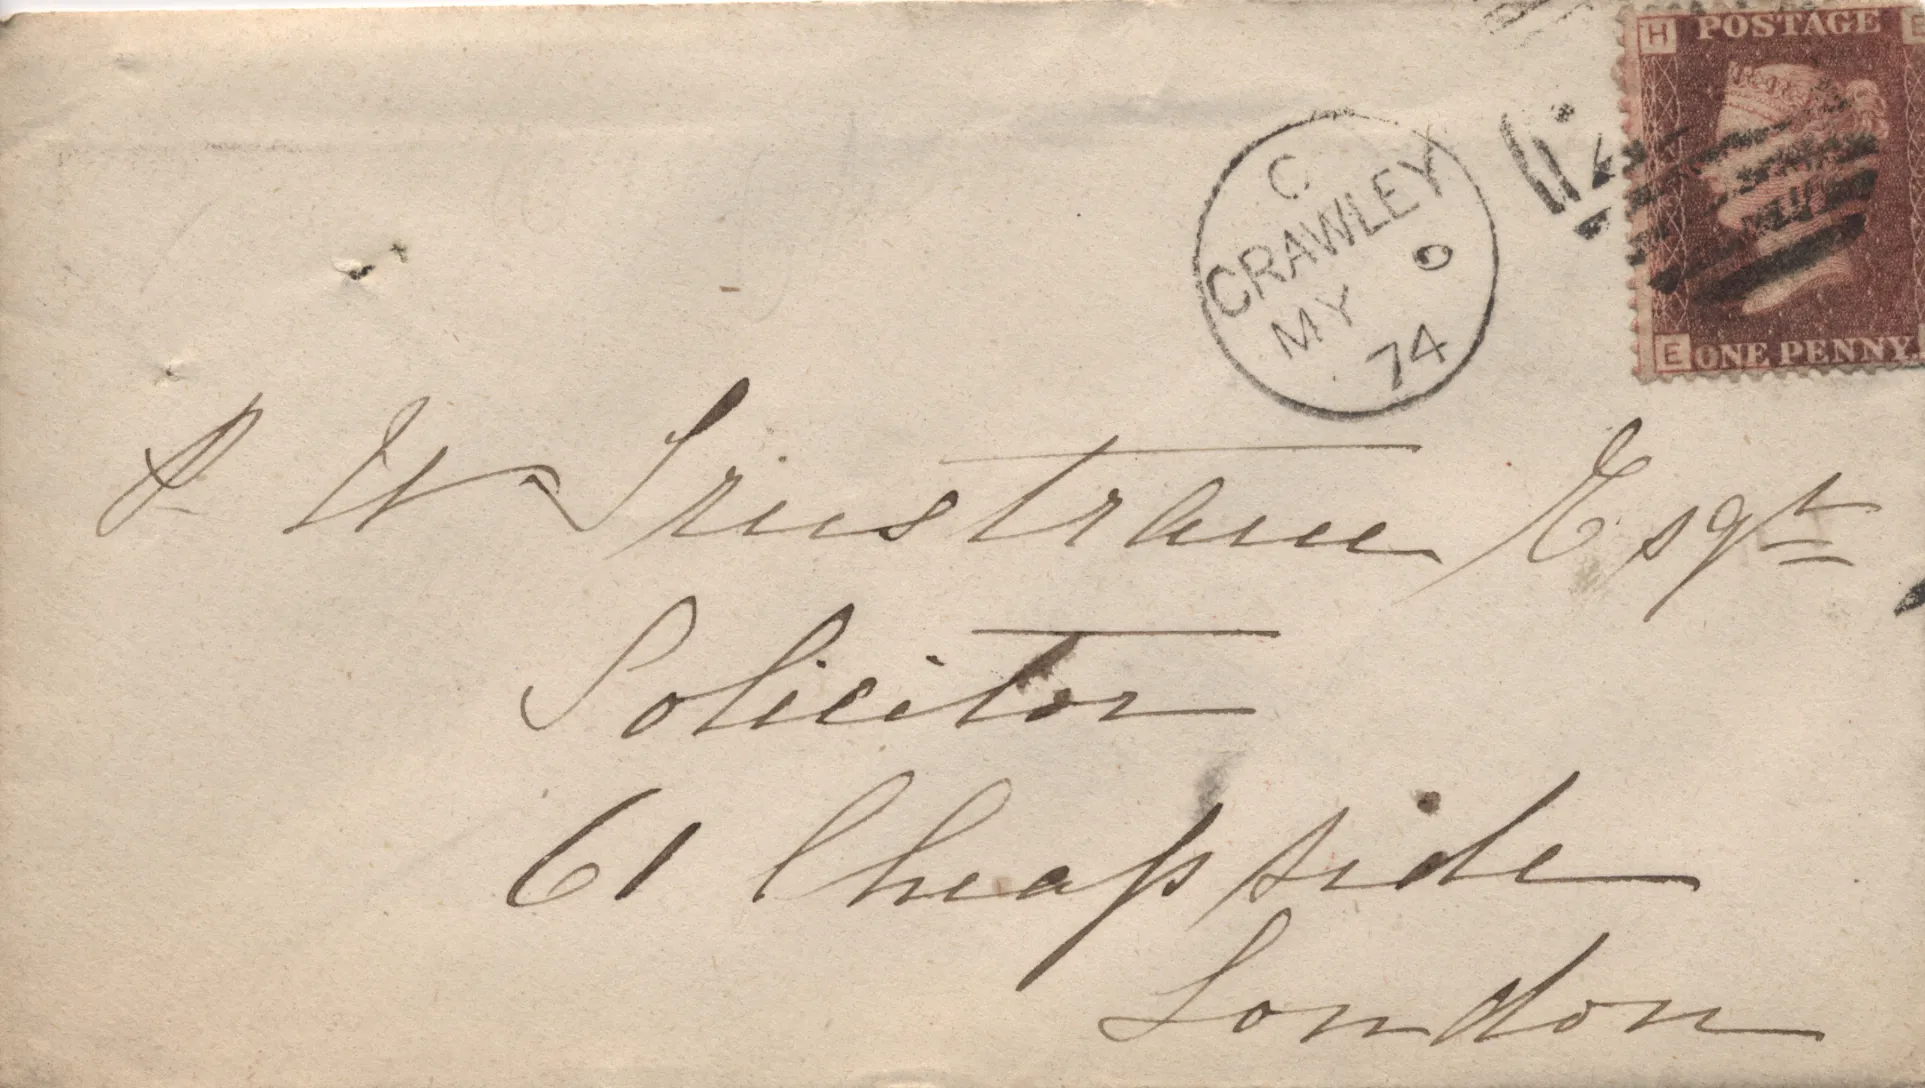 H POSTAGE E
C
CRAWLEY
MY 9
74
E ONE PENNY.
P. W. Tristram Esqre
Solicitor
61 Cheapside
London